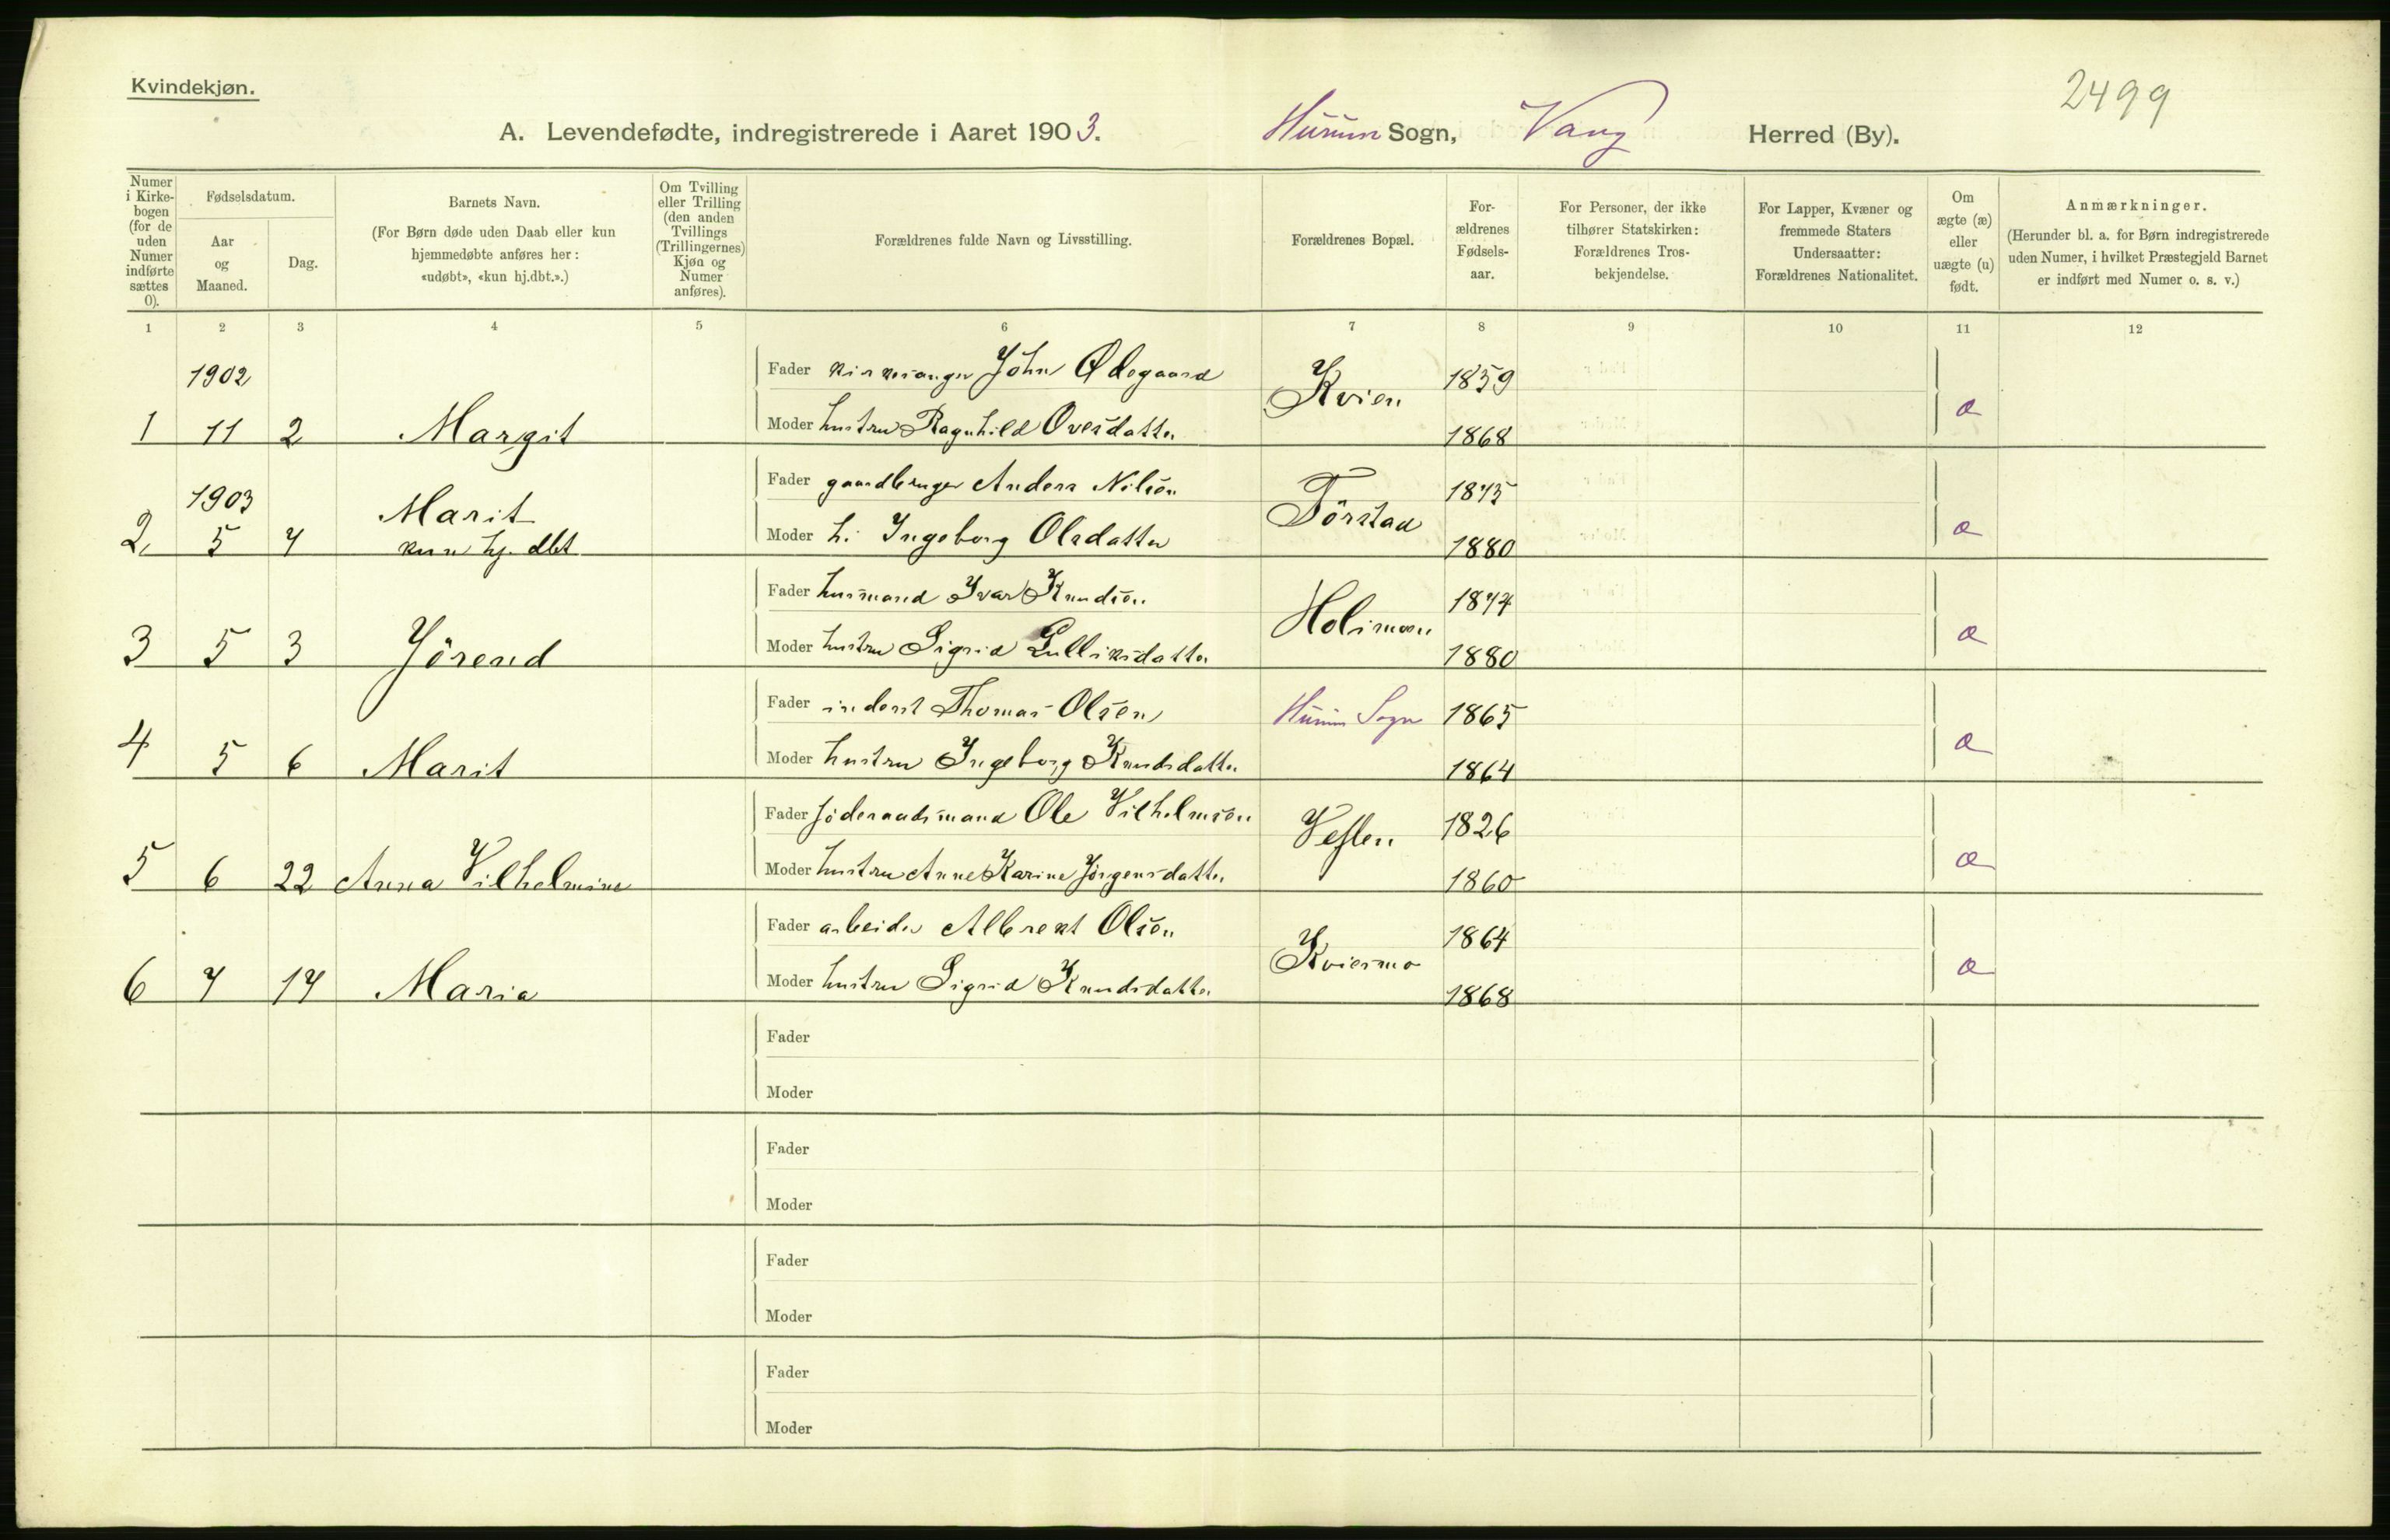 Kvindekjøn.
2499
A. Levendefødte, indregistrerede i Aaret 1903. Hurum Sogn, Vang Herred (By).
Numer i Kirkebogen (for de uden Numer indførte sættes 0).
Fødselsdatum.
Aar og Maaned.
Dag.
Barnets Navn.
(For Børn døde uden Daab eller kun hjemmedøbte anføres her: «udøbt», «kun hj.dbt.».)
Om Tvilling eller Trilling (den anden Tvillings (Trillingernes) Kjøn og Numer anføres).
Forældrenes fulde Navn og Livsstilling.
Forældrenes Bopæl.
For-ældrenes Fødsels-aar.
For Personer, der ikke tilhører Statskirken: Forældrenes Tros-bekjendelse.
For Lapper, Kvæner og fremmede Staters Undersaatter: Forældrenes Nationalitet.
Om ægte (æ) eller uægte (u) født.
Anmærkninger.
(Herunder bl. a. for Børn indregistrerede uden Numer, i hvilket Præstegjeld Barnet er indført med Numer o. s. v.)
1 2 3 4 5 6 7 8 9 10 11 12
1902 Fader kirkesanger John Ødegaard Kvien 1859
1 11 2 Margit Moder hustru Ragnhild Ovesdatter 1868 æ
1903 Marit Fader gaardbruger Anders Nilsen Törstad 1875
2, 5 7 kun hj. dbt Moder h. Ingeborg Olsdatter 1880 æ
Fader husmand Ivar Knudsen 1877
3 5 3 Jörend Moder hustru Sigrid Gulliksdatter 1880 æ
Fader inderst Thomas Olsen Hurum Sogn 1865
4 5 6 Marit Moder hustru Ingeborg Knudsdatter 1864 æ
Fader Ole Vilhelmsen 1826
5 6 22 Anna Vilhelmine Moder hustru Anne Karine Jörgensdatter 1860 æ
Fader arbeider Albrekt Olsen Kviesmo 1864
6 7 17 Maria Moder hustru Sigrid Knudsdatter 1868 æ
Fader
Moder
Fader
Moder
Fader
Moder
Fader
Moder